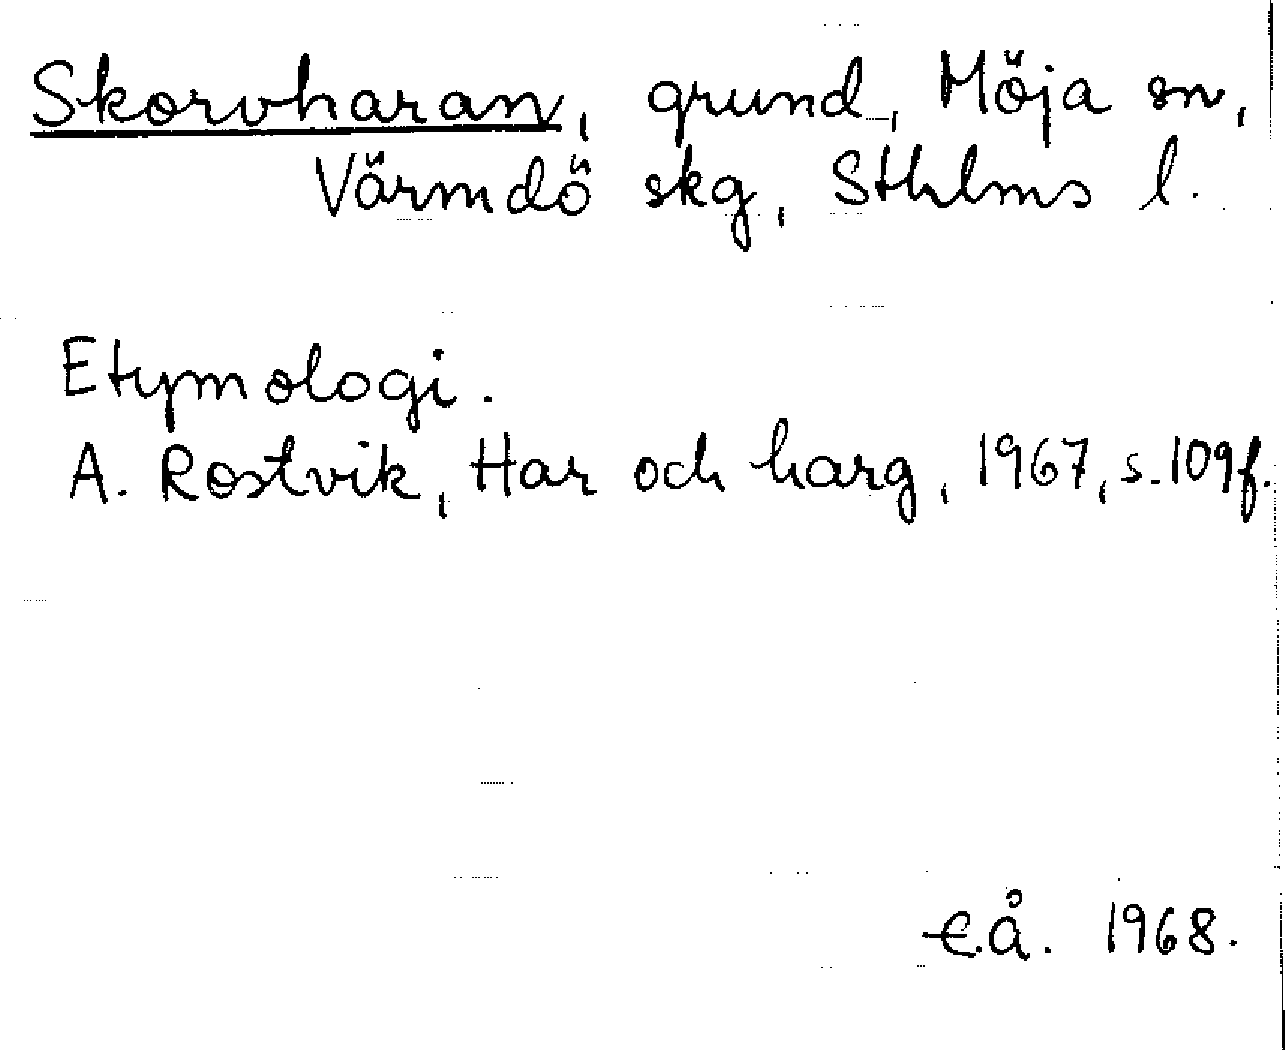 Skorvharan, grund, Möja sn,
Värmdö skg, Sthlms l.
Etymologi.
A. Rostvik, Har och harg, 1967, s. 109f.
E.Å. 1968.